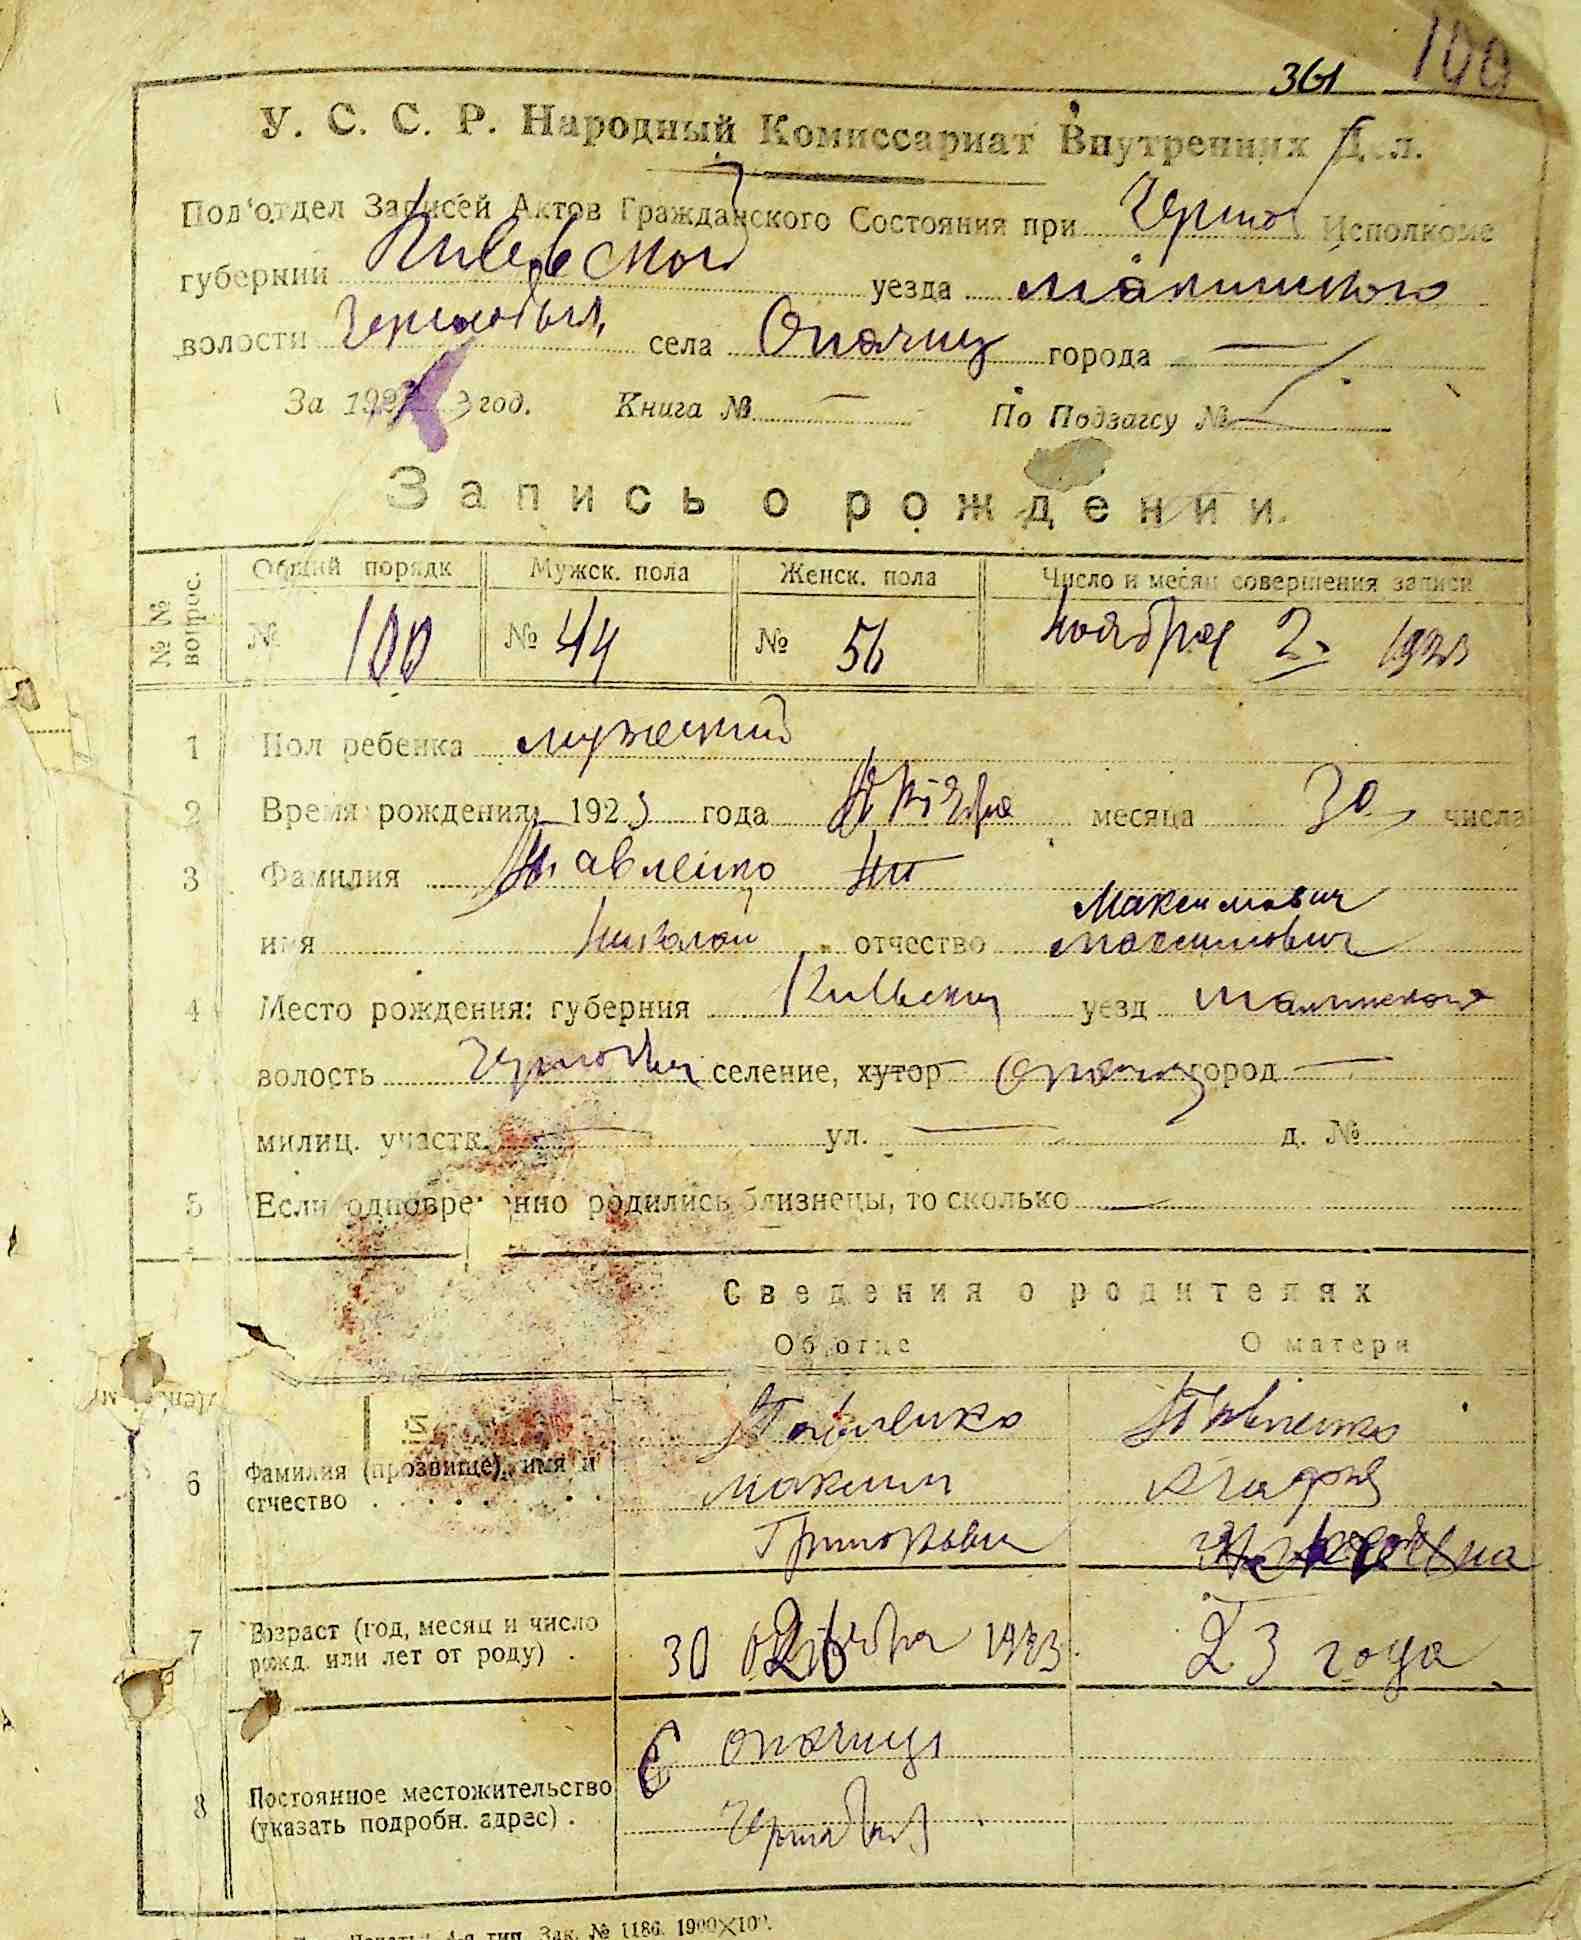 361 100
У. С. С. Р. Народный Комиссариат Внутренних Дел.
Под'отдел Записей Актов Гражданского Состояния при Черноб Исполкоме
губернии Киевской уезда Малинского
волости Чернобыл. села Опачиц города —
За 192 3 год. Книга № — По Подзагсу № —
Запись о рождении.
№ № вопрос. Общий порядк Мужск. пола Женск. пола Число и месяц совершения записи
№ 100 № 44 № 56 Ноября 2. 1923
1 Пол ребенка мужеский
2 Время рождения: 1923 года Октября месяца 30 числа
3 Фамилия Павленко
Максимович
имя Николай отчество Максимович
4 Место рождения: губерния уезд Малинского
волость селение, хутор город —
милиц. участк. — ул. — д. №
5 Если одновременно родились близнецы, то сколько —
Сведения о родителях
Об отце О матери
6 Фамилия (прозвище), имя и отчество Павленко Павленко
Максим Агафия
Григорьевич
7 Возраст (год, месяц и число рожд. или лет от роду) 30 октября 1923 26 23 года
8 Постоянное местожительство (указать подробн. адрес) С Опачици
тип. Зак. № 1186. 1900×10